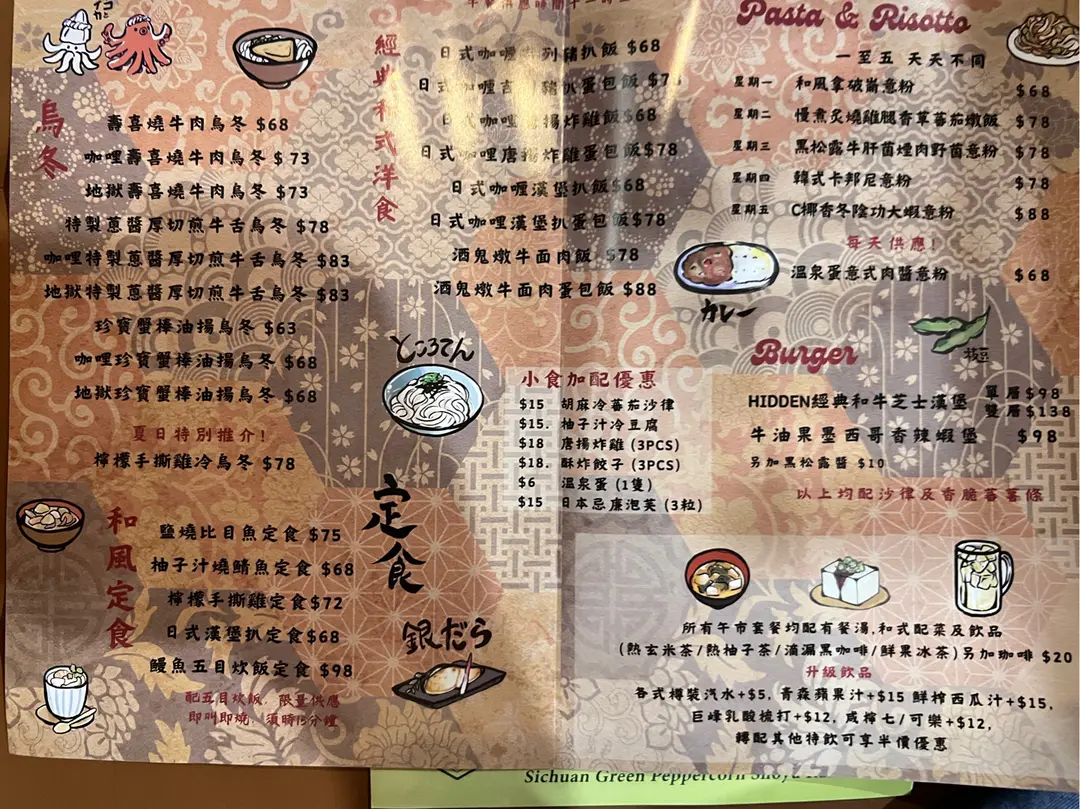 イカと
コ
烏冬
壽喜燒牛肉烏冬 $68
咖哩壽喜燒牛肉烏冬 $73
地獄壽喜燒牛肉烏冬 $73
特製蔥醬厚切煎牛舌烏冬 $78
咖哩特製蔥醬厚切煎牛舌烏冬 $83
地獄特製蔥醬厚切煎牛舌烏冬 $83
珍寶蟹棒油揚烏冬 $63
咖哩珍寶蟹棒油揚烏冬 $68
地獄珍寶蟹棒油揚烏冬 $68
夏日特別推介!
檸檬手撕雞冷烏冬 $78
和風定食
鹽燒比目魚定食 $75
柚子汁燒鯖魚定食 $68
檸檬手撕雞定食$72
日式漢堡扒定食$68
鰻魚五目炊飯定食 $98
配五目炊飯, 限量供應
即叫即燒, 須時15分鐘
經典和式洋食
日式咖喱吉列豬扒飯 $68
日式咖喱吉列豬扒蛋包飯 $78
日式咖哩唐揚炸雞飯$68
日式咖哩唐揚炸雞蛋包飯$78
日式咖喱漢堡扒飯$68
日式咖哩漢堡扒蛋包飯$78
酒鬼燉牛面肉飯 $78
酒鬼燉牛面肉蛋包飯 $88
ところてん
定食
銀だら
小食加配優惠
$15 胡麻冷蕃茄沙律
$15. 柚子汁冷豆腐
$18 唐揚炸雞 (3PCS)
$18. 酥炸餃子 (3PCS)
$6 溫泉蛋 (1隻)
$15 日本忌廉泡芙 (3粒)
Pasta & Risotto
一至五 天天不同
星期一 和風拿破崙意粉 $68
星期二 慢煮炙燒雞腿香草蕃茄燉飯 $78
星期三 黑松露牛肝菌煙肉野菌意粉 $78
星期四 韓式卡邦尼意粉 $78
星期五 C椰香冬陰功大蝦意粉 $88
每天供應!
溫泉蛋意式肉醬意粉 $68
カレー
枝豆
Burger
HIDDEN經典和牛芝士漢堡 單層$98
雙層$138
牛油果墨西哥香辣蝦堡 $98
另加黑松露醬 $10
以上均配沙律及香脆蕃薯條
所有午市套餐均配有餐湯,和式配菜及飲品
(熱玄米茶/熱柚子茶/滴漏黑咖啡/鮮果冰茶)另加珈啡 $20
升級飲品
各式樽裝汽水+$5, 青森蘋果汁+$15 鮮榨西瓜汁+$15,
巨峰乳酸梳打+$12, 咸檸七/可樂+$12,
轉配其他特飲可享半價優惠
Sichuan Green Peppercorn Shoyu